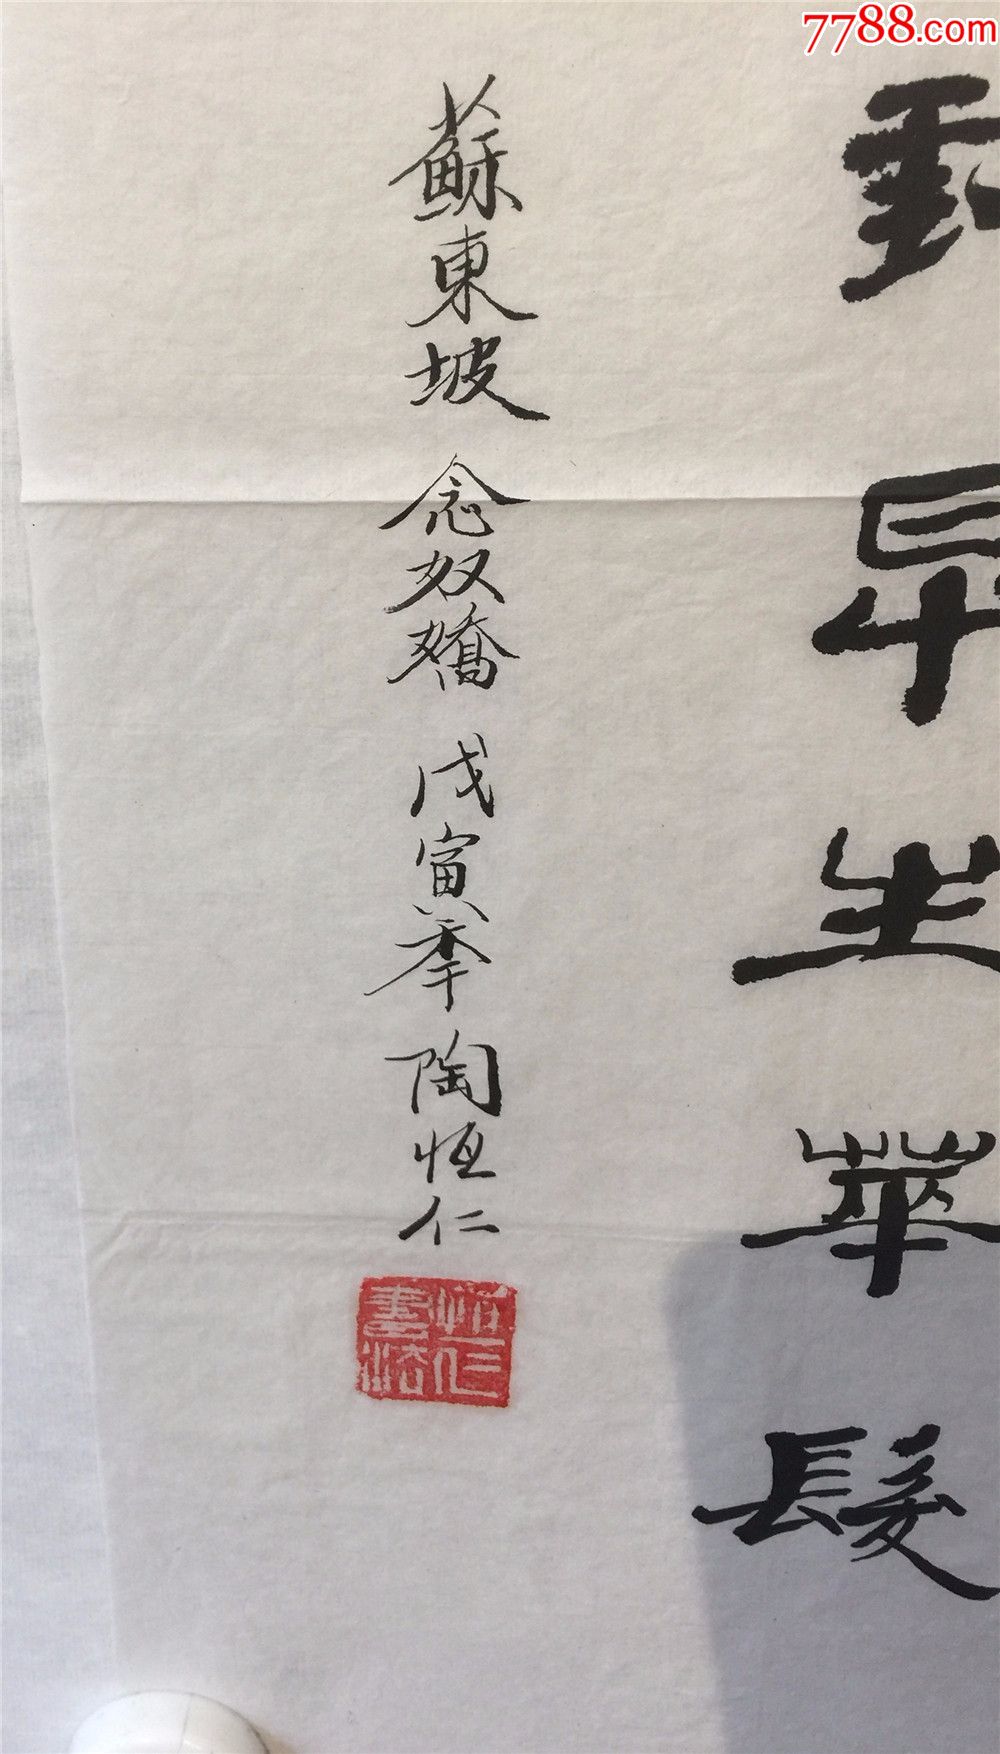 7788.com
我早生華髮
蘇東坡 念奴嬌 戊寅秊 陶恒仁
恒仁書法